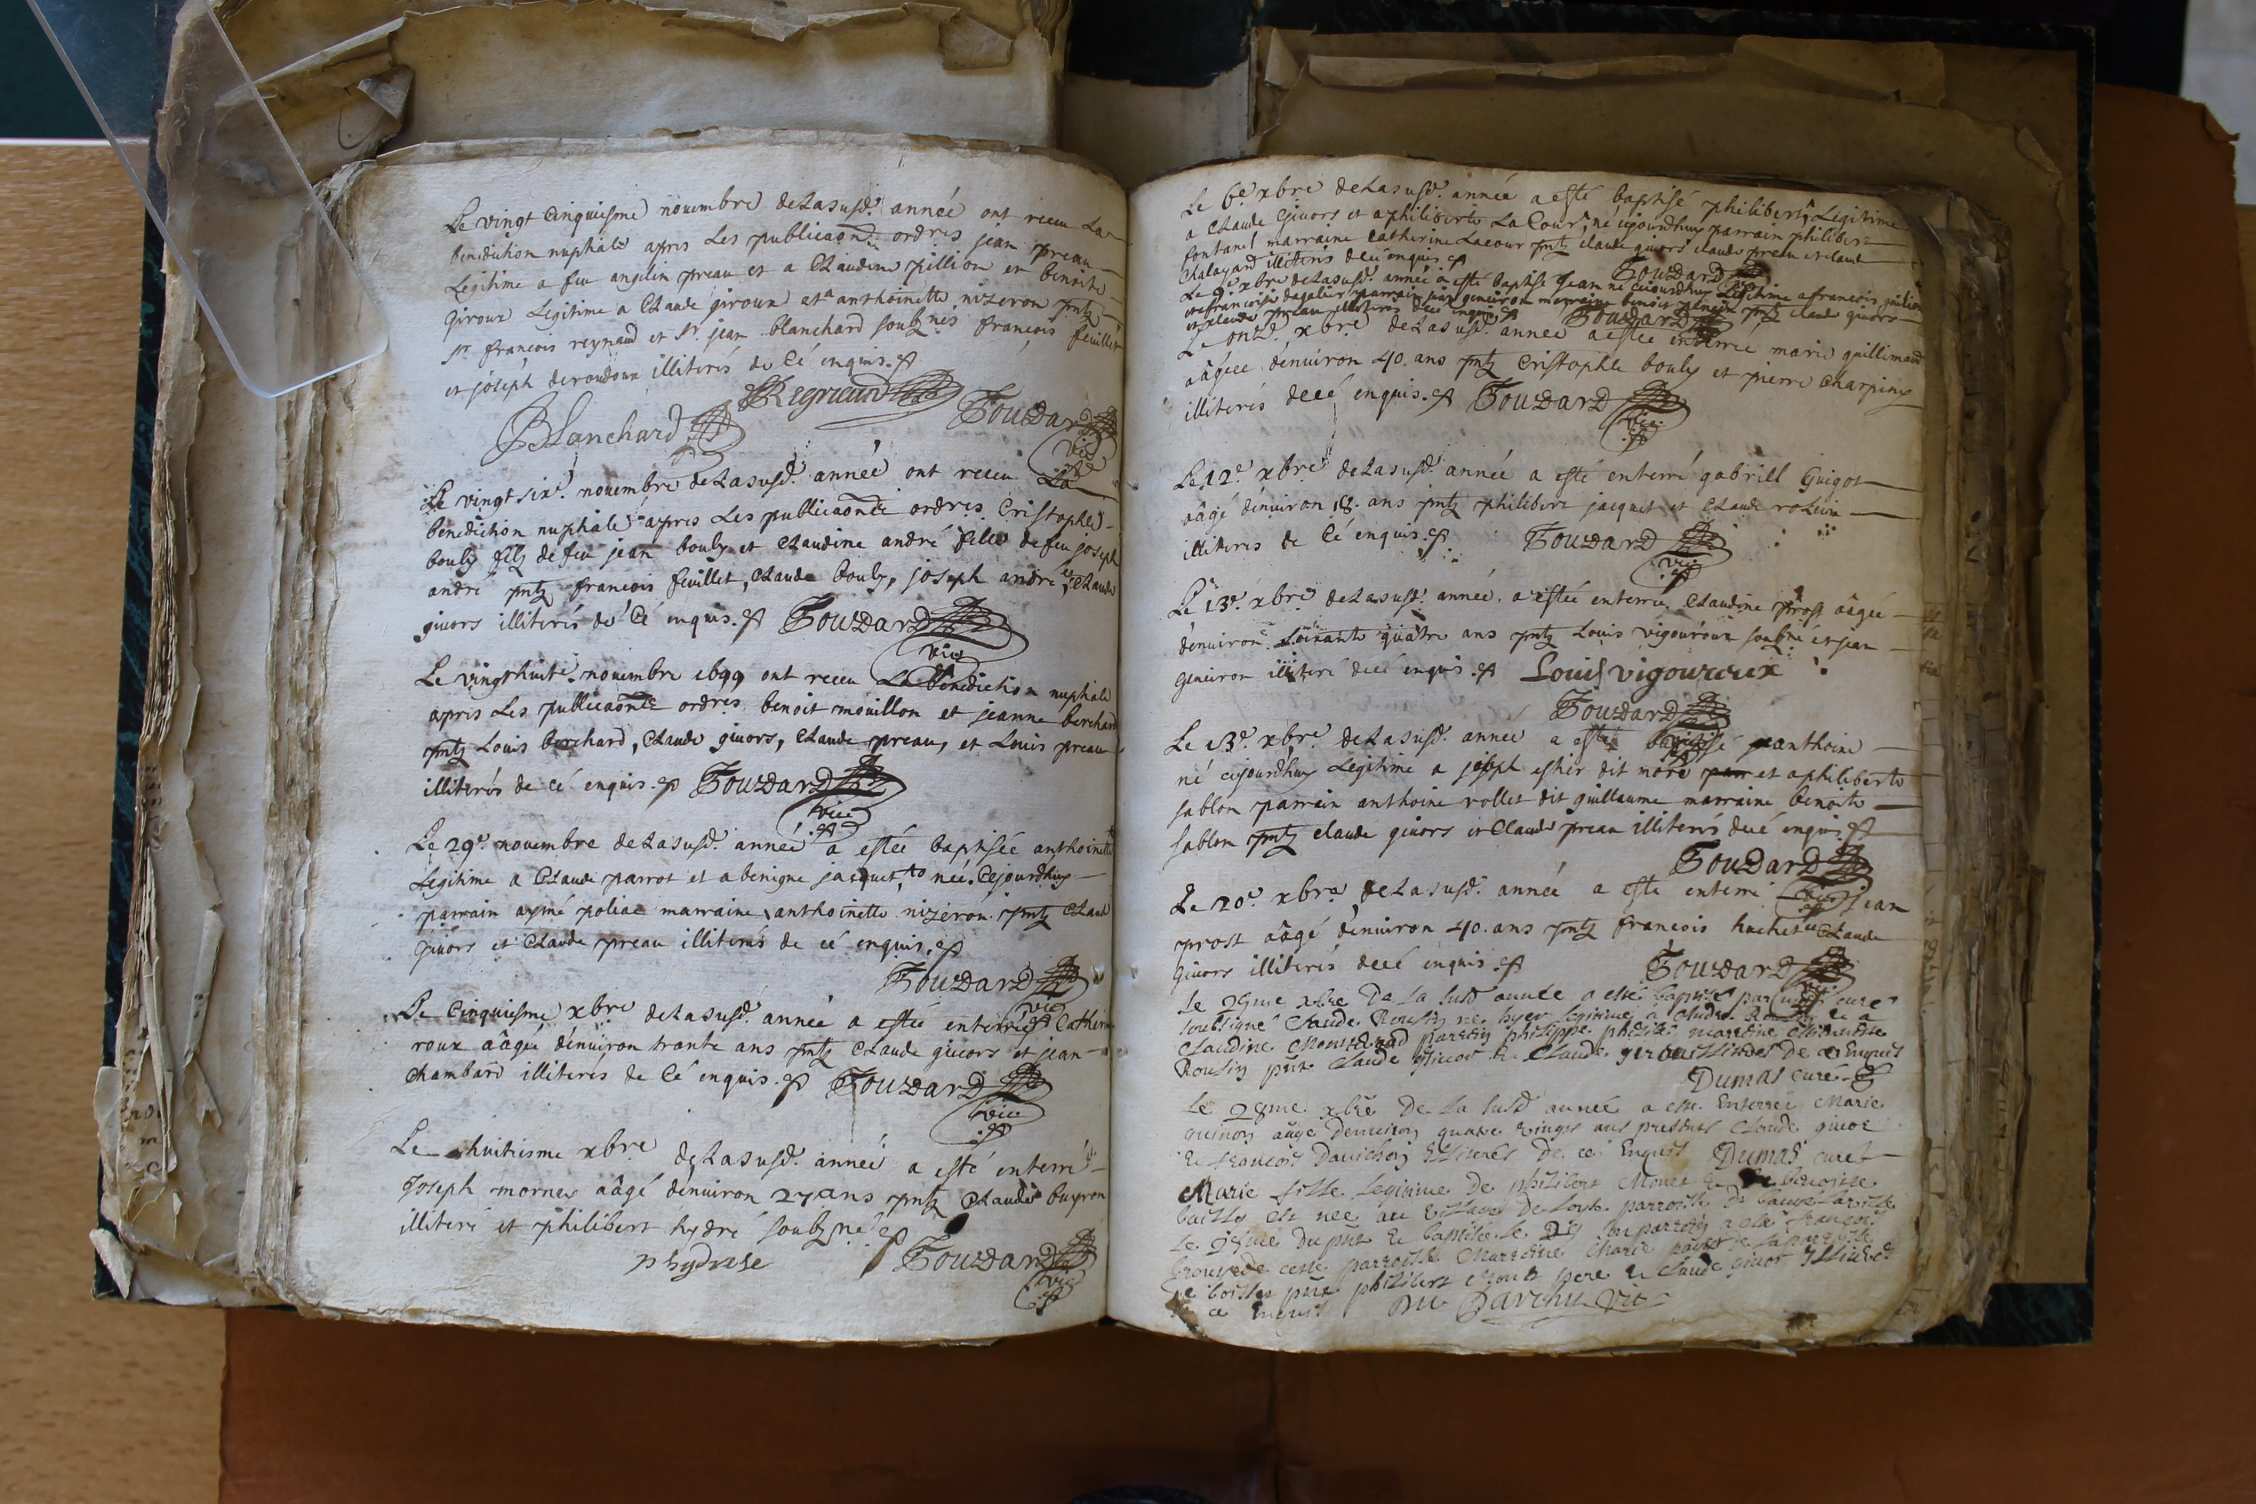 Le vingt cinquiesme novembre de la susd. année ont receu La
benediction nuptiale apres Les publicaons ordres jean preau
Legitime a feu angelin preau et a Claudine pillion et benoite
Giroux Legitime a Claude giroux et a anthoinette nizeron pntz
sr. françois reynaud et sr. jean blanchard soubznés françois feuillet
et joseph deroudoux illiterés de Cé enquis.
Blanchard Regnaud Fouzdard
vic
Le vingt six.e novembre de La susd. année ont receu La
benediction nuptiale apres Les publicaons ordres Cristophle
bouly filz de feu jean bouly et Claudine andré fille de feu joseph
andré pntz francois feuillet, Claude bouly, joseph andré et Claude
givors illiterés de Cé enquis. Fouzdard
vic
Le vingthuite. novembre 1699 ont receu La benediction nuptiale
apres Les publicaons ordres benoit mouillon et jeanne berchard
pntz Louis berchard, Claude givors, Claude preau, et Louis preau
illiterés de cé enquis. Fouzdard
vic
Le 29e. novembre de La susd. année a estée baptisée anthoinette
Legitime a Claude parrot et a benigne jacquet, née Cejourdhuy
parrain aymé poliac marraine anthoinette nizeron pntz Claude
givors et Claude preau illiterés de cé enquis.
Fouzdard
vic
Le Cinquiesme xbre de La susd. année a estée enterrée Catherine
roux aâgée denuiron trante ans pntz Claude givors et jean
Chambard illiteres de Cé enquis. Fouzdard
vic
Le huitiesme xbre de La susd. année a esté enterré
Joseph mornex aâgé denuiron 27 ans pntz Claude buyron
illiteré et philibert hydre soubzné
p hydrese Fouzdard
vic
Le 6e xbre de La susd. année a esté baptisé philibert Legitime
a Claude Givors et a philiberte La Cour, né cejourdhuy parrain philibert
fontanel marraine Catherine Lacour pntz claude givors claude preau et claude
Chalayard illiteris de cé enquis
Fouzdard
Le 9e xbre de La susd. année a esté baptisé jean né cejourdhuy Legitime a francois
et a francoise parrain jean geneiron marraine benoite pntz claude givors
et claude preau illiteres de cé enquis Fouzdard
Le onze. xbre de La susd. année a estée enterrée marie guillimand
aâgée denuiron 40. ans pntz Cristophle bouly et pierre Charpiny
illiterés de cé enquis. Fouzdard
vic
Le 12e. xbre de La susd. année a esté enterré gabriel Guigot
aâgé denuiron 18. ans pntz philibert jacquet et Claude
illiterés de Cé enquis. Fouzdard
vic
Le 13e. xbre de La susd. année. a estée enterrée Claudine prost aâgée
denuiron Soixante quatre ans pntz Louis vigouroux soubzné et jean
geneiron illiteré de cé enquis. Louis vigoureux
Fouzdard
Le 13e. xbre. de La susd. année a esté baptisé anthoine
né cejourdhuy Legitime a joseph eshir dit moré et a philiberte
sablon parrain anthoine rollet dit guillaume marraine benoite
sablon pntz claude givors et Claude preau illiterés de cé enquis
Fouzdard
Le 20e. xbre de La susd. année a esté enterré jean
prost aâgé denuiron 40. ans pntz francois huchet et Claude
Givors illiterés de cé enquis. Fouzdard
Le 25me xbre De La susd année a esté baptisé par curé
soubsigné Claude Rousin né hyer legitime a Claude et a
Claudine parrein philippe marreine
Rousin pnts Claude Givor et Claude illitérés De cé Enquis
Dumas curé
Le 28me xbre De La susd année a esté Enterrée Marie
aâgée Denuiron quatre vingts ans presents Claude givor
et françois illiterés De cé Enquis Dumas curé
Marie fille Legitime de philibert et de benoiste
est née au village De parroisse de
Le du pnt et baptisée le parrein a esté françois
de ceste parroisse Marreine Marie
pnts philibert pere et Claude givor illiterés
de ce Enquis